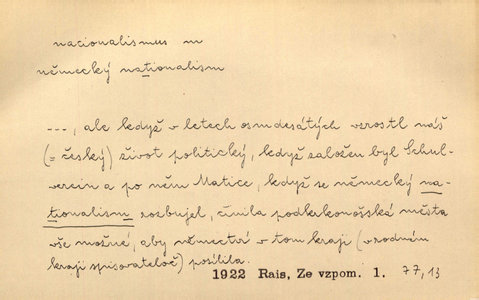 nacionalismus m
německý nationalism
---, ale když v letech osmdesátých vzrostl náš
(= český) život politický, když založen byl Schul-
verein a po něm Matice, když se německý na-
tionalism rozbujel, činila podkrkonošská města
vše možné, aby němectví v tom kraji (v rodném
kraji spisovatelově) posílila.
1922 Rais, Ze vzpom. 1. 77, 13